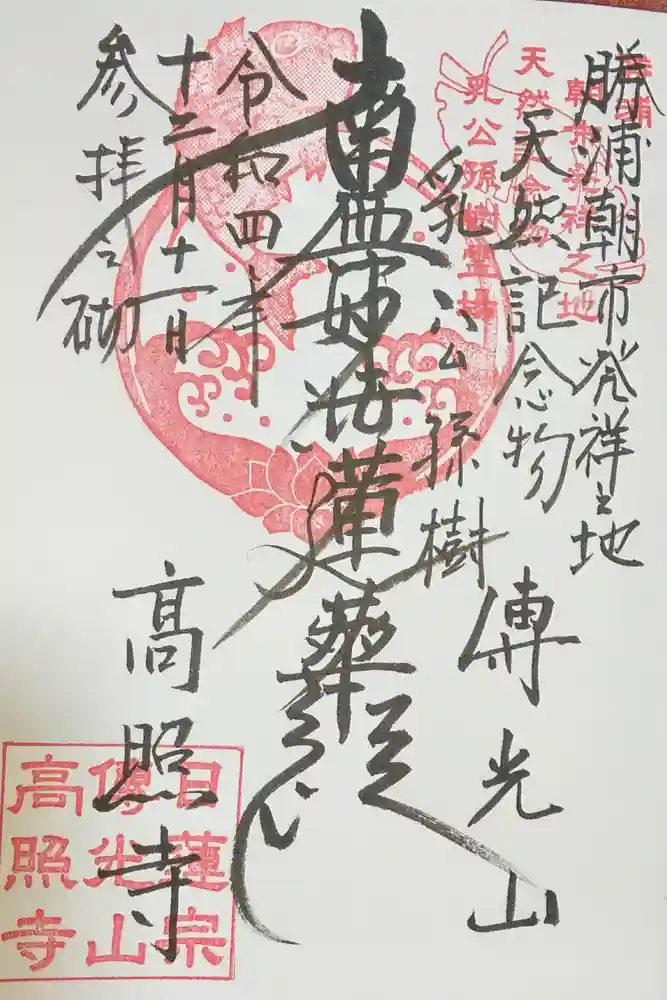 勝浦朝市発祥之地
天然記念物
乳公孫樹
傳光山
南無妙法蓮華経
令和四年
十二月十一日
参拝之砌
高照寺
勝浦
朝市発祥之地
天然記念物
乳公孫樹霊場
日蓮宗
傳光山
高照寺